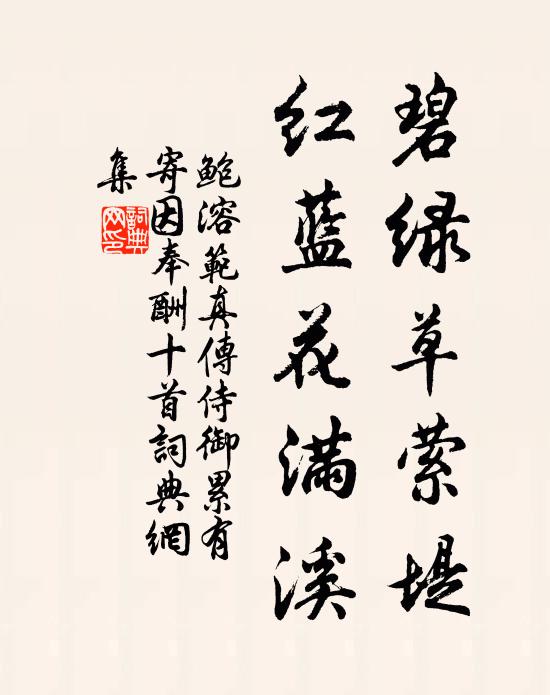 碧绿草萦堤
红蓝花满溪
鲍溶範真傳侍御累有
寄因奉酬十首詞典網
集
詞典
网印